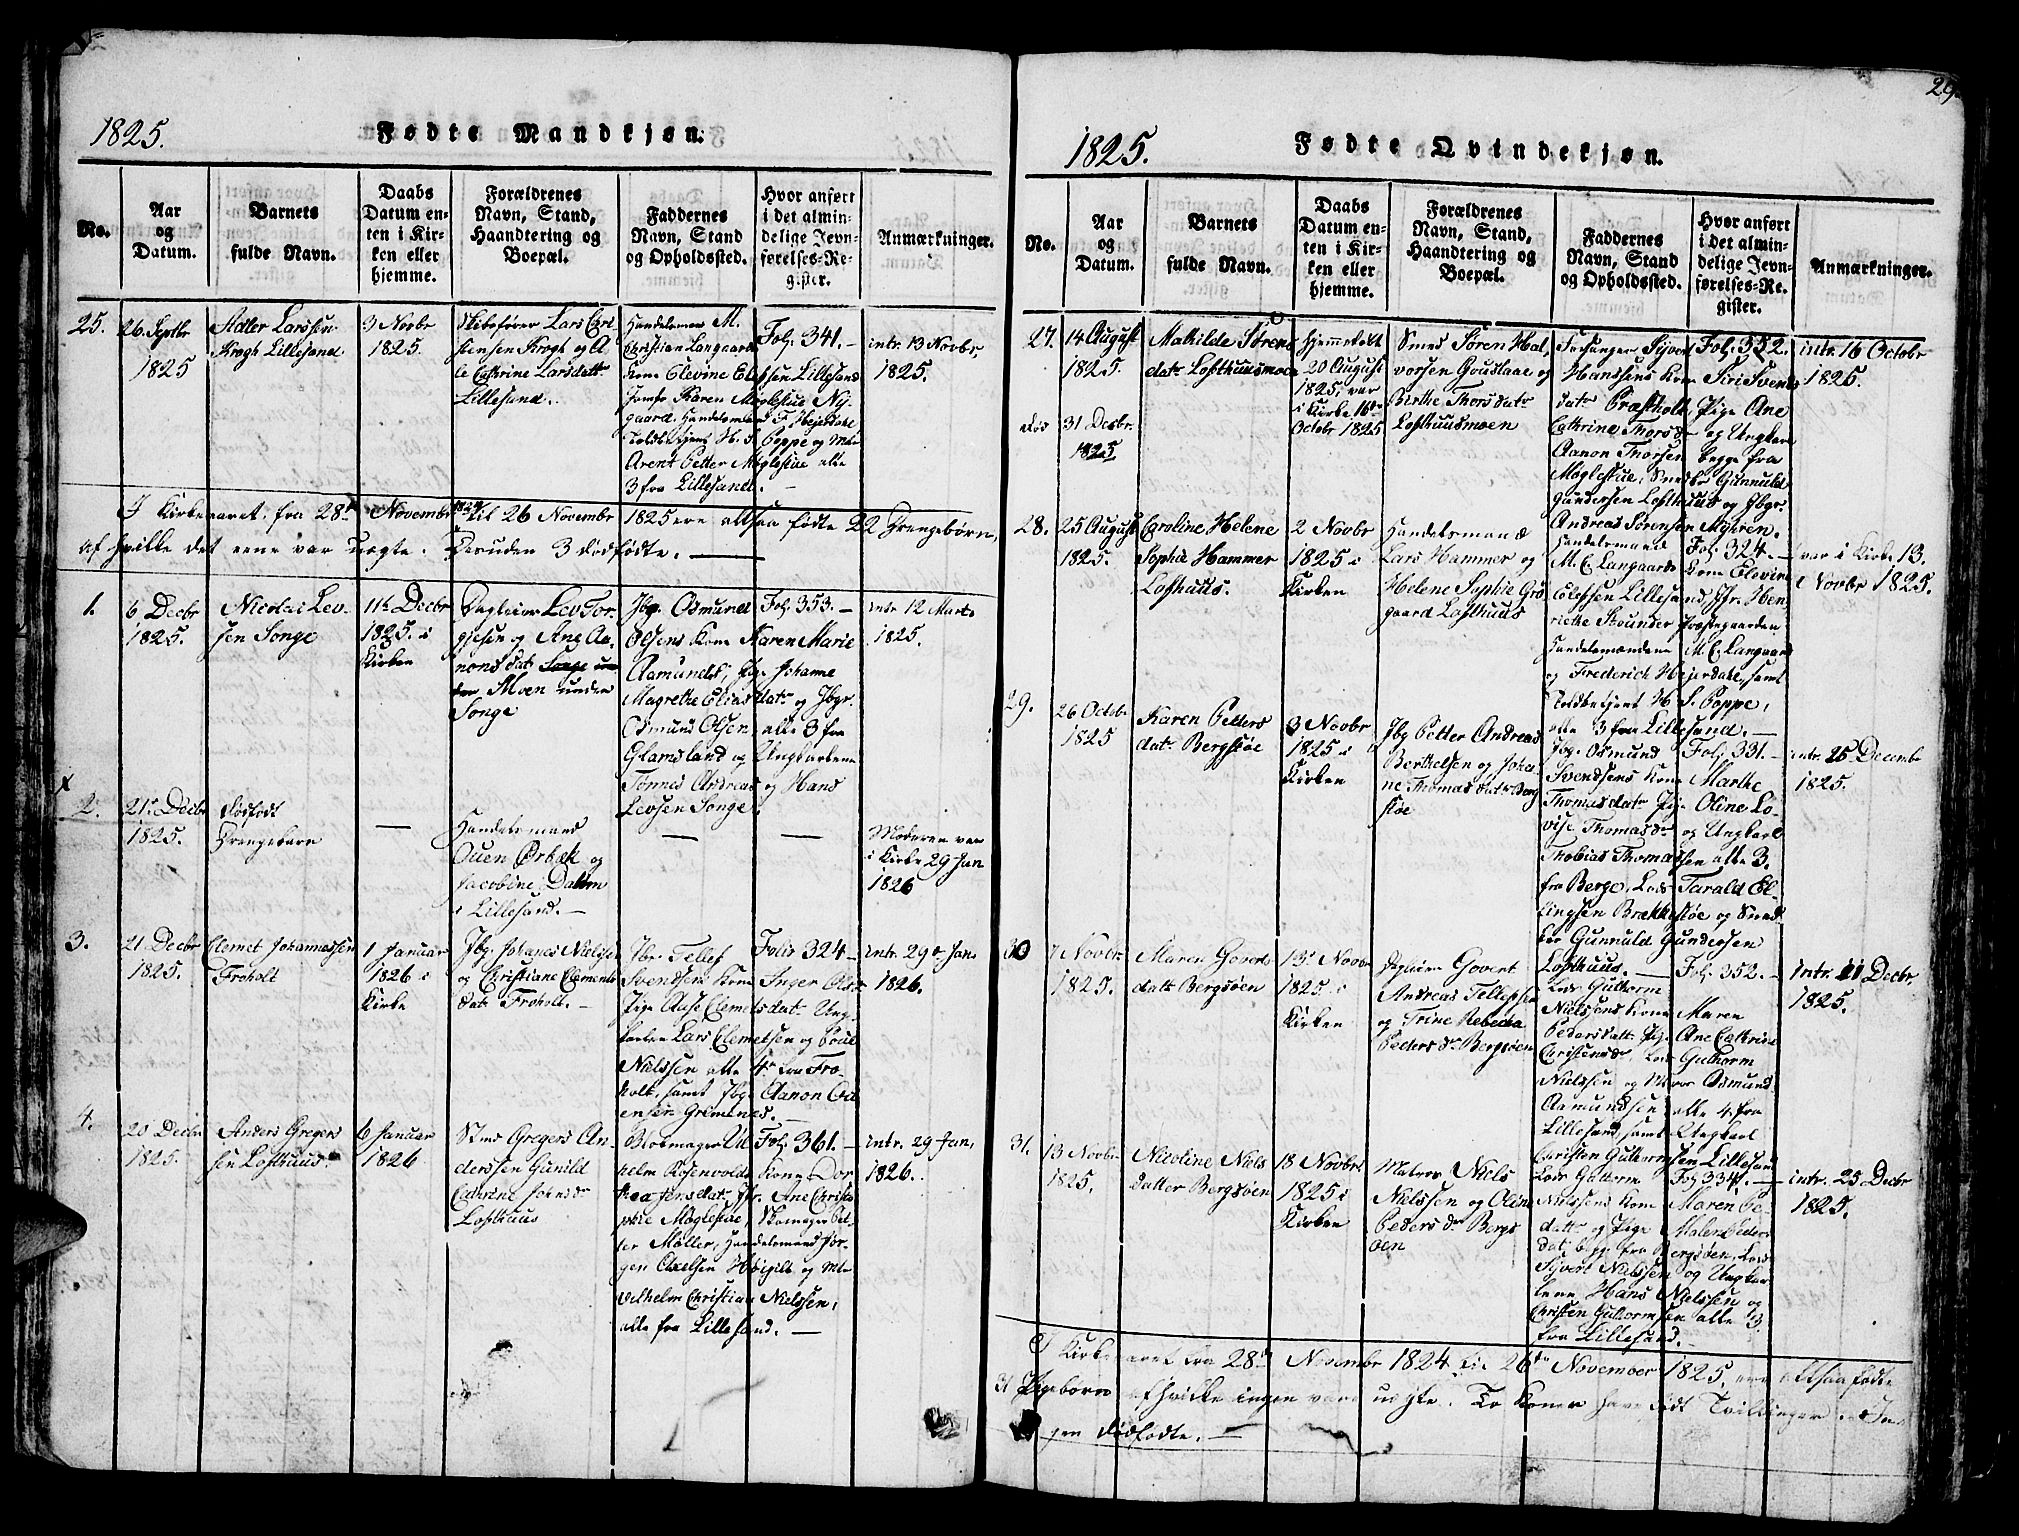 29
1825.
Fødte Mandkjøn.
No.
Aar
og
Datum.
Barnets
fulde Navn.
Daabs
Datum en-
ten i Kir-
ken eller
hjemme.
Forældrenes
Navn, Stand,
Haandtering og
Boepæl.
Faddernes
Navn, Stand
og Opholdssted.
Hvor anført
i det almin-
delige Jevn-
førelses-Re-
gister.
Anmærkninger.
25.
26 Septbr
1825
Adler Larssen
Krogh Lillesand
3 Novbr
1825.
Skibsfører Lars Chri
stensen Krogh og A
le Cathrine Larsdatt.
Lillesand.
Handelsmm M.
Christian Langaards
Kone Elevine Elefsen Lillesand
Jomfr Karen Møglestue Ny-
gaard, Handelsmæn F. Hejerdahl
Toldbetjent H. S. Poppe og
Arent Petter Møglestue alle
3 fra Lillesand.
Fol. 341.
intr. 13 Novbr
1825.
I Kirkeaaret fra 28de Novembr 1824 til 26 Novembr 1825 ere altsaa fødte 22 Drengebørn,
af hvilke det eene var uægte. Desuden 3 dødfødte.
1.
6 Decbr
1825.
Nicolai Lev-
sen Songe
11te Decbr
1825. i
Kirken
Daglejer Lev Tor-
gjesen og Ane Aa-
nonsdat Songe un
der Moen under
Songe
Jbg. Osmund
Olsens Kone Karen Marie
Aamundsd, Pige Johanne
Magrethe Eliasdatr og Jbgr.
Osmund Olsen alle 3 fra
Glamsland og Ungkarlene
Tønnes Andreas og Hans
Levsen Songe.
Fol. 353.
intr 12 Marts
1825.
x
2.
21. Decbr
1825.
Dødfødt
Drengebarn
Handelsmand
Ouen Ørbæk og
Jacobine Dahm
i Lillesand.
Moderen var
i Kirke 29 Jan
1826
3.
21 Decbr
1825.
Clemet Johannessen
Froholt
1 Januar
1826 i
Kirke
Jbg. Johanes Nielsen
og Christiane Clemets
datr Froholt.
Jbr. Tellef
Svendsens Kone Inger
Pige Aase Clemetsdatr Ung
karlene Lars Clemetsen og Poul
Nielssen alle 4 fra Fro-
holt, samt Jbg. Aanon
ensen Gremenes.
Folio 324
intr. 29de Jan.
1826.
4.
20 Decbr
1825.
Anders Gregers
sen Lofthuus
6 Januar
1826
Smed Gregers An
derssen Gunild
Cathrine Johnsdr
Lofthuus
Blokmager Vil
helm Rosenvolds Kone Dor
thea Jensdat, Jfr. Ane Christi
Sophie Møglestue, Skomager Pet-
ter Møller, Handelsmand Jør-
gen Axelsen Høigilt og
Vilhelm Christian Nielssen,
alle fra Lillesand.
Fol. 361.
intr. 29 Jan,
1826.
1825.
Fødte Qvindekjøn.
No.
Aar
og
Datum.
Barnets
fulde Navn.
Daabs
Datum en-
ten i Kir-
ken eller
hjemme.
Forældrenes
Navn, Stand,
Haandtering og
Boepæl.
Faddernes
Navn, Stand
og Opholdssted.
Hvor anført
i det almin-
delige Jevn-
førelses-Re-
gister.
Anmærkninger.
27.
14 August
1825.
død
31 Decbr.
1825
Mathilde Sørens
datr Lofthuusmoen
hjemmedøbt
20 August
1825, var
i Kirke 16de
Octobr 1825
Smed Søren Hal-
vorsen Gruslaae og
Birthe Thorsdatr
Lofthuusmoen
Forsanger Syvert
Hanssens Kone Siri Svens
datr Præstholt, Pige Ane
Cathrine Thorsdr og Ungkarl
Aanon Thorsen begge fra
Møglestue, Snedkr Gunnuld
Gundersen Lofthuus og Jbgr.
Andreas Sørensen Myhren.
Fol. 352.
intr. 16 Octobr
1825.
28.
25 August
1825.
Caroline Helene
Sophie Hammer
Lofthuus.
2 Novbr
1825 i
Kirken
Handelsmand
Lars Hammer og
Helene Sophie Grø
gaard Lofthuus
Handelsmand
M. C. Langaards Kone Elevine
Elefsen Lillesand, Jfr. Hen
riette Stounder Præstegaarden
Handelsmændene M. C. Langaard
og Frederich Hejerdahl, samt
Toldbetjent H. S. Poppe,
alle 3 fra Lillesand.
Fol. 324.
var i Kirke 13.
Novbr 1825.
29.
26 Octobr
1825
Karen Petters
datr Bergsøe
3 Novbr
1825 i
Kirken
Jbg Petter Andreas
Berthelsen og Joha-
ne Thomasdatr Berg
støe
Jbg. Osmund
Svendsens Kone Marthe
Thomasdatr Pige Oline Lo-
vise Thomasdr og Ungkarl
Thobias Thomassen alle 3.
fra Berge, Lods Tarald El
lingsen Brækkestøe og Sned
ker Gunnuld Gundersen
Lofthuus.
Fol. 331.
intr. 25 Decembr
1825.
30
7 Novbr
1825.
Maren Goverts
datt Bergsøen
13. Novbr
1825. i
Kirken
Daglejer Govert
Andreas Tellefsen
og Trine Rebecka
Pedersdr Bergsøen
Lods Guttorm
Nielssens Kone Maren
Pedersdatt. Pige Ane Cathrine
Christensdr Lods Guttorm
Nielssen og Matros Osmund
Aamundsen alle 4 fra
Lillesand, samt Ungkarl
Christen Guttormsen Lillesand
Fol. 352.
intr. 11 Decbr.
1825.
31.
13 Novbr
1825.
Nicoline Niels
datter Bergsøen
18 Novbr
1825 i
Kirken
Matros Niels
Nielssen og Oline
Pedersdr Bergs
øen
Lods Guttorm
Nielssens Kone Maren Pe-
datr og Pige Malene Peders
dat, begge fra Bergsøen, Lods
Syvert Nielssen og Ungkar
lene Hans Nielssen og
Christen Guttormsen alle 3
fra Lillesand.
Fol 334.
intr. 25 Decbr
1825.
I Kirkeaaret fra 28de Novembr 1824 til 26de November 1825, ere altsaa fødte
31 Pigebørn af hvilke ingen vare uægte. To Koner have født Tvillinger. In-
gen dødfødte.